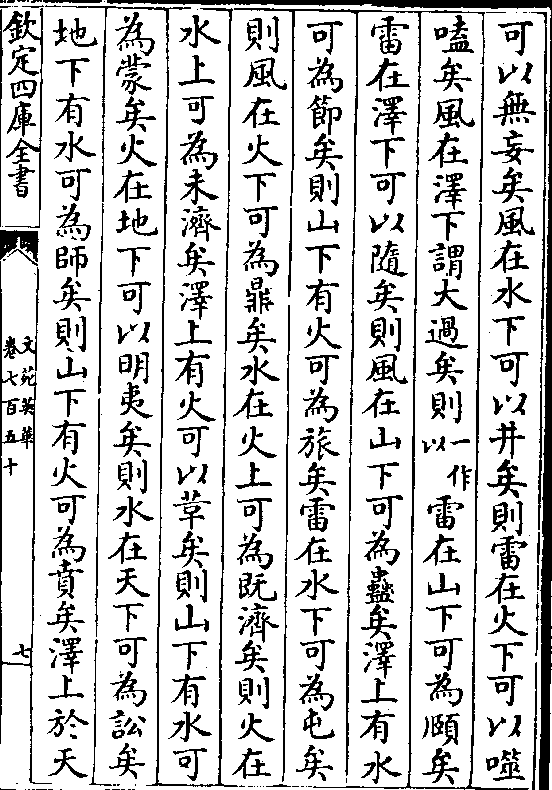 可以無妄矣風在水下可以井矣則雷在火下可以噬
嗑矣風在澤下謂大過矣則一作以雷在山下可為頤矣
雷在澤下可以隨矣則風在山下可為蠱矣澤上有水
可為節矣則山下有火可為旅矣雷在水下可為屯矣
則風在火下可為鼎矣水在火上可為既濟矣則火在
水上可為未濟矣澤上有火可以革矣則山下有水可
為蒙矣火在地下可以明夷矣則水在天下可為訟矣
地下有水可為師矣則山下有火可為賁矣澤上於天
欽定四庫全書
文苑英華
卷七百五十
七